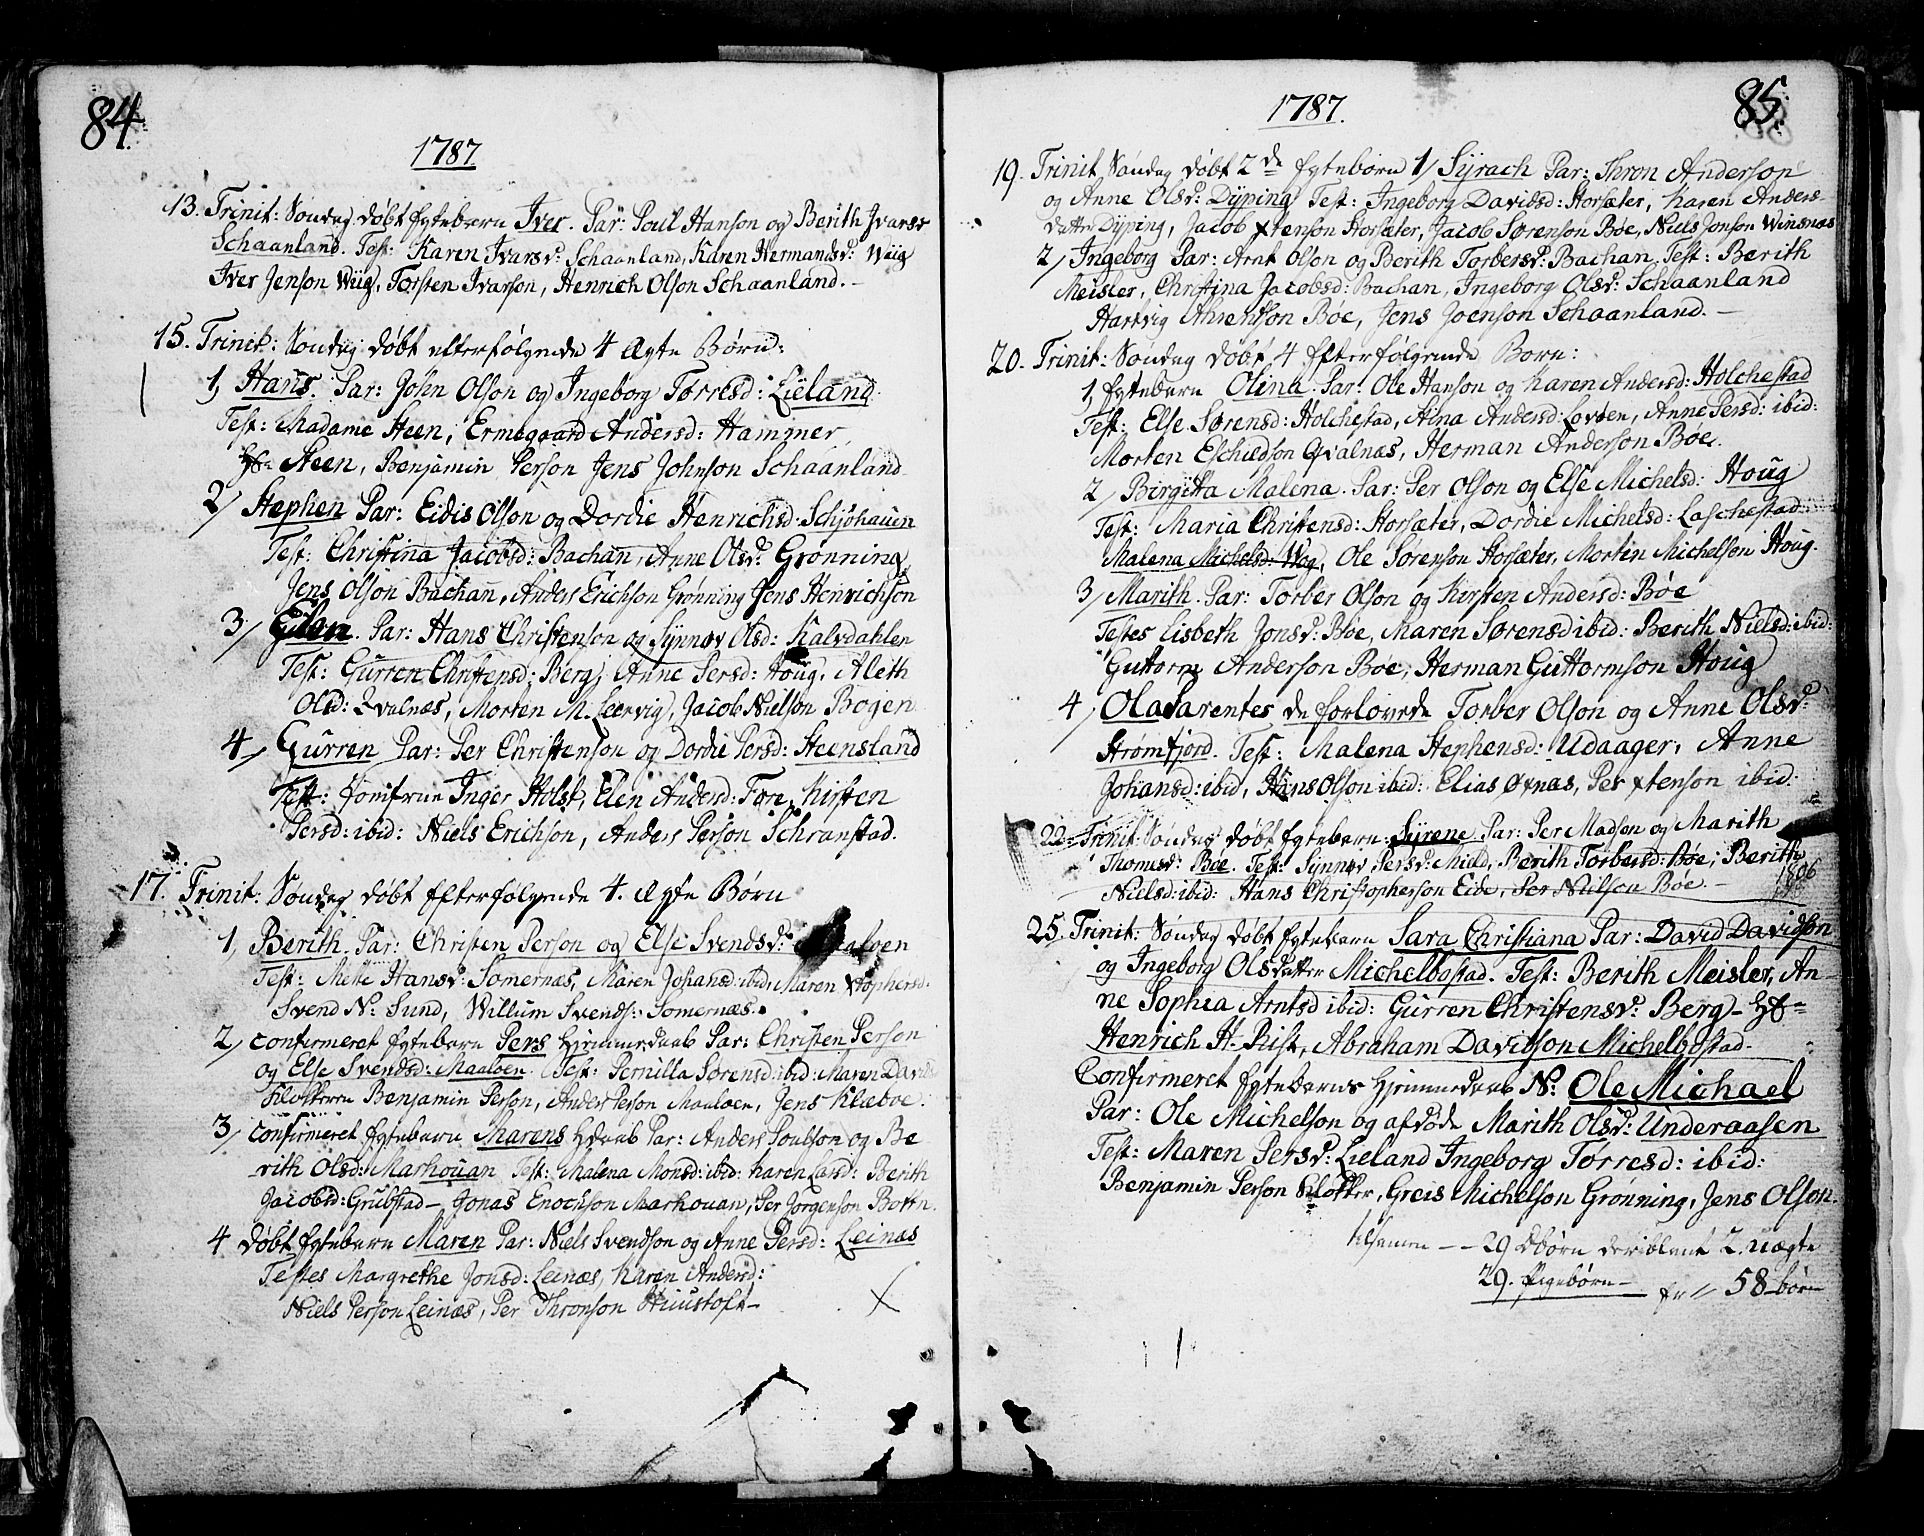 84.
1787
13. Trinit: Søndag døbt Egtebarn Iver. Par: Poul Hanson og Berith Ivarsd
Schaanland. Test: Karen Ivarsd: Schaanland, Karen Hermandsd: Wiig
Iver Jenson Wiig, Torsten Ivarson, Henrich Olson Schaanland. —
15. Trinit: Søndag døbt efterfølgende 4 Ægte Børn:
1, Hans. Par: John Olson og Ingeborg Torresd: Lieland.
Test: Madame Steen, Ermegaard Andersd: Hammer
Hr. Steen, Benjamin Person Jens Johnson Schaanland.
2/ Stephen Par: Eidis Olson og Dordie Henrichsd: Schjøhauen
Test: Christina Jacobsd: Bachan, Anne Olsd. Grønning
Jens Olson Bachan, Anders Erichson Grønning Jens Henrichson
3/ Elen. Par: Hans Christenson og Synnov Olsd: Kalvdahlen
Test: Gurren Christensd: Berg, Anne Persd: Houg, Aleth
Olsd: Qvalnæs, Morten M. Leervig, Jacob Nielson Bogen
4/ Gurren Par: Per Christenson og Dordie Persd: Steensland
Test: Jomfrue Inger Holst, Elen Andersd: Fore, Kirsten
Persd: ibid: Niels Erichson, Anders Person Schranstad.
17. Trinit: Søndag døbt Efterfølgende 4. Ægte Børn
1, Berith. Par: Christen Person og Else Svendsd: Maaloen
Test: Mette Hansd: Somernæs, Maren Johansd: ibid: Maren Xtophersd.
Svend N: Sund, Willum Svends: Somernæs.
2/ Confirmeret Egtebarn Pers Hjemmedaab Par: Christen Person
og Else Svendsd: Maaloen. Test: Pernilla Sørensd: ibid: Maren David
Klokkeren Benjamin Person, Anders Person Maaloen, Jens Klæboe.
3/ Confirmeret Egtebarn Marens Hdaab Par: Anders Poulson og Be
rith Olsd: Markouan Test: Malena Monsd: ibid: Karen Larsd: Berith
Jacobsd: Grubstad — Jonas Enochson Markouan, Per Jørgenson Botten.
4 Døbt Egtebarn Maren Par: Niels Svendson og Anne Persd: Leinæs
Testes Margrethe Jonsd: Leinæs, Karen Andersd:
Niels Person Leinæs, Per Thronson Hiustoft —
85.
1787.
19. Trinit Søndag døbt 2de Egtebørn 1/ Syrach Par: Thron Anderson
og Anne Olsd: Dyping Test: Ingeborg Davidsd: Horsæter, Karen Anders-
datter Dyping, Jacob Xtenson Horsæter, Jacob Sørenson Bøe, Niels Jonson Winsnæs
2/ Ingeborg Par: Arnt Olson og Berith Torbersd: Bachan. Test: Berith
Meisler, Christina Jacobsd: Bachan, Ingeborg Olsd: Schaanland
Hartvig Ahrentson Bøe, Jens Joenson Schaanland. —
20. Trinit: Søndag døbt 4 Efterfølgende Børn:
1, Egtebarn Olina. Par: Ole Hanson og Karen Andersd: Holchestad
Test: Else Sørensd: Holchestad, Alna Andersd: Lovøen, Anne Persd: ibid:
Morten Eschedson Qvalnæs, Herman Anderson Bøe.
2/ Birgitta Malena. Par: Per Olson og Else Michelsd: Houg
Test: Maria Christensd: Horsæter, Dordie Michelsd: Laschestad
Malena Michelsd: Wog, Ole Sørenson Horsæter, Morten Michelson Houg.
3/ Marith. Par: Torber Olson og Kirsten Andersd: Bøe
Testes Lisbeth Jonsd: Bøe, Maren Sørensd ibid: Berith Nielsd: ibid:
Guttorm Anderson Bøe, Herman Guttormson Houg
4/ Ola Parentes de forlovede Torber Olson og Anne Olsd:
Strømfjord. Test: Malena Stephensd: Udaager, Anne
Johansd: ibid, Hans Olson ibid: Elias Øxnæs, Per Xtenson ibid:
22. Trinit: Søndag døbt Egtebarn: Syrene Par: Per Madson og Marith
Thomsd: Bøe. Test: Synnov Persd: Mild, Berith Torbersd: Bøe, Berith
Nielsd: ibid: Hans Christopherson Eide, Per Nielson Bøe. —
1806
25. Trinit: Søndag døbt Egtebarn Sara Christiana Par: David Davidson
og Ingeborg Olsdatter Michelbostad. Test: Berith Meisler, An
ne Sophia Arntsd ibid: Gurren Christensd. Berg — Hr.
Henrich H. Rist, Abraham Davidson Michelbostad.
Confirmeret Egtebarns Hjemmedaab N: Ole Michael
Par: Ole Michelson og afdøde Marith Olsd: Underaasen
Test: Maren Persd: Lieland Ingeborg Torresd: ibid:
Benjamin Person Klokker, Greis Michelson Grønning, Jens Olson.
tilsamen — 29 børn deriblant 2 uægte
29. Pigebørn — er 58 børn